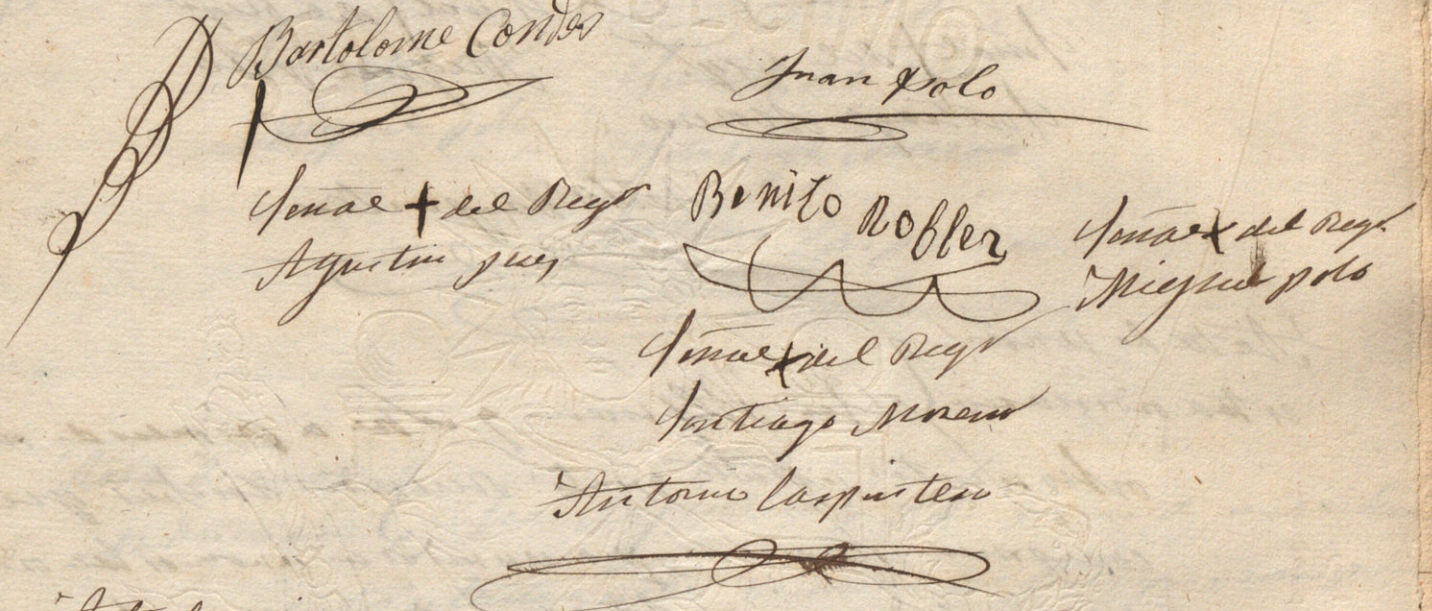 Bartolome Condes
Juan Polo
Señal + del Regr
Agustin
Benito Robles
Señal + del Regr
Miguel Polo
Señal + del Regr
Santiago Moreno
Antonio Carpintero